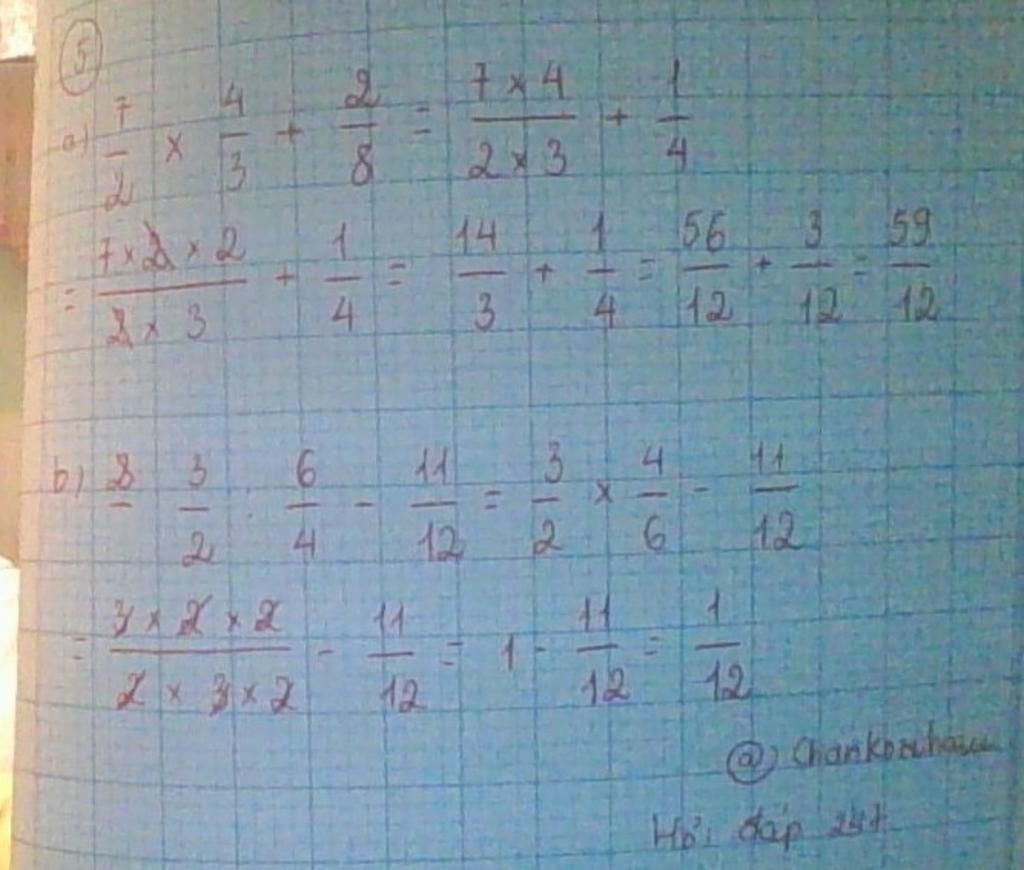 5
a) 7/2 × 4/3 + 2/8 = 7 × 4 / 2 × 3 + 1/4
= 7 × 2 × 2 / 2 × 3 + 1/4 = 14/3 + 1/4 = 56/12 + 3/12 = 59/12
b) 3/2 : 6/4 - 11/12 = 3/2 × 4/6 - 11/12
= 3 × 2 × 2 / 2 × 3 × 2 - 11/12 = 1 - 11/12 = 1/12
@
Hỏi đáp 247